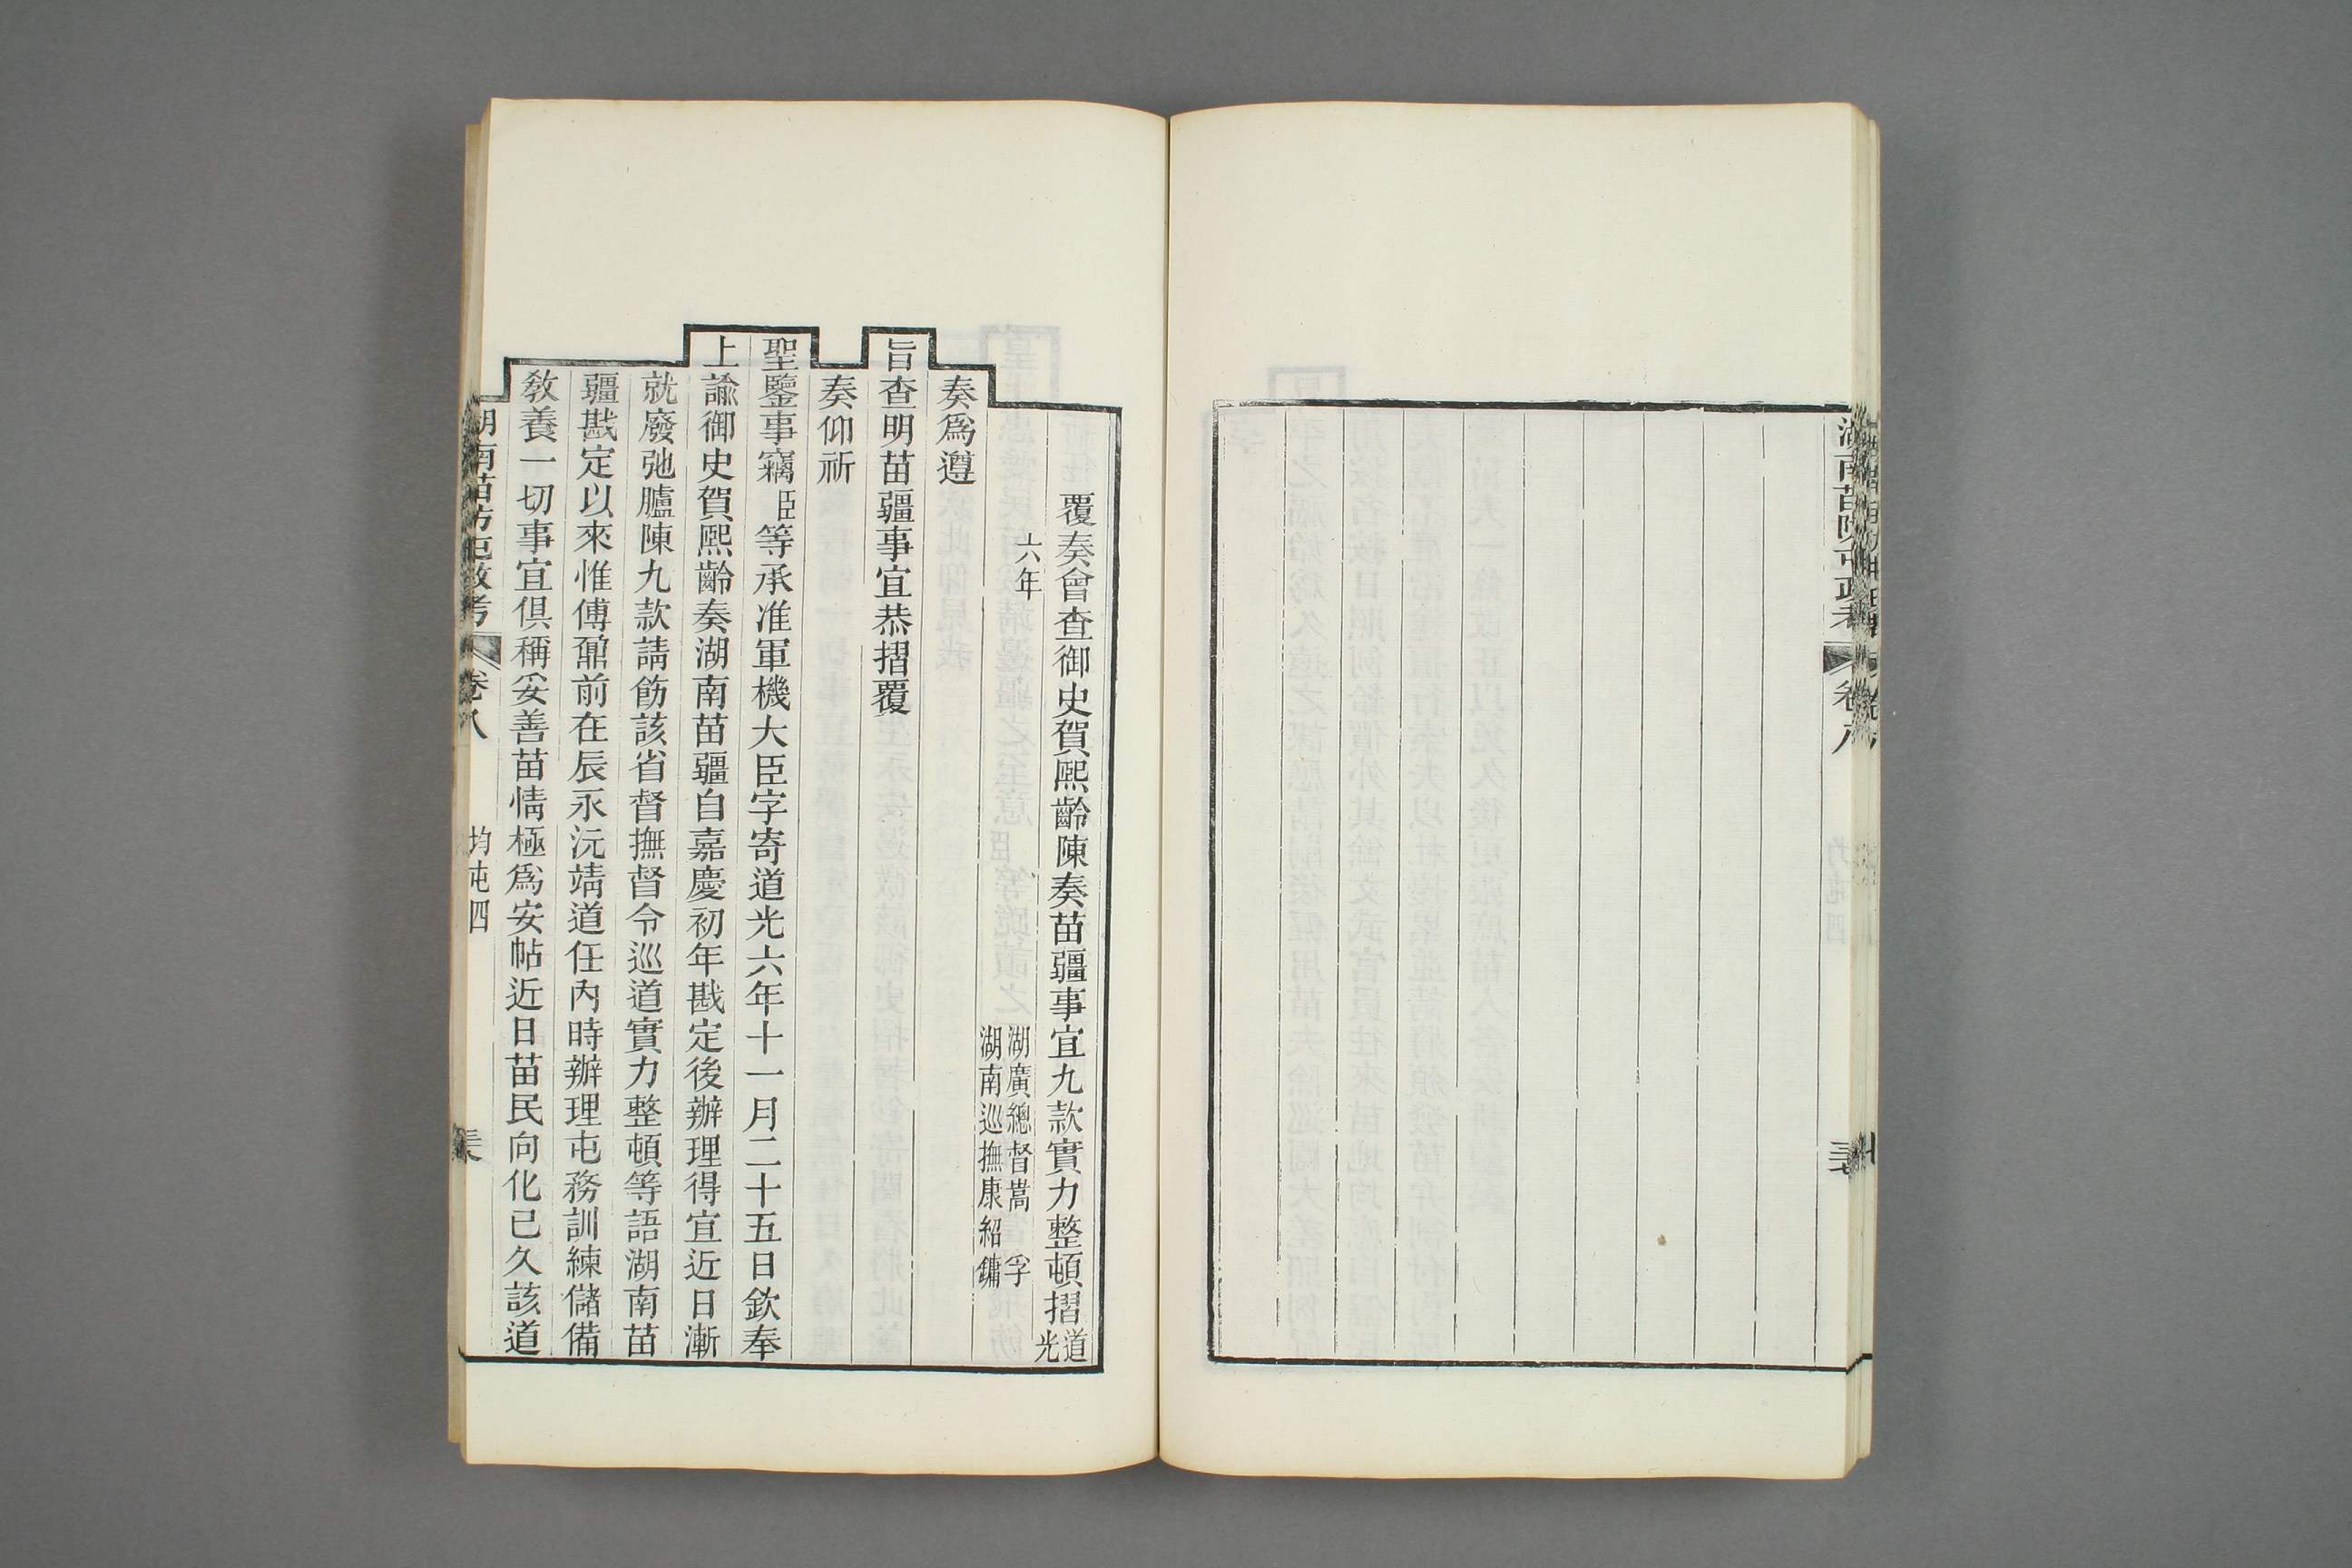 湖南苗防屯政考
卷八
覆奏會查御史賀熙齡陳奏苗疆事宜九款實力整頓摺道光
六年
湖廣總督嵩孚
湖南巡撫康紹鏞
奏爲遵
旨查明苗疆事宜恭摺覆
奏仰祈
聖鑒事竊臣等承准軍機大臣字寄道光六年十一月二十五日欽奉
上諭御史賀熙齡奏湖南苗疆自嘉慶初年戡定後辦理得宜近日漸
就廢弛臚陳九款請飭該省督撫督令巡道實力整頓等語湖南苗
疆戡定以來惟傅鼐前在辰永沅靖道任內時辦理屯務訓練儲備
教養一切事宜俱稱妥善苗情極爲安帖近日苗民向化已久該道
湖南苗防屯政考
卷八
均屯四